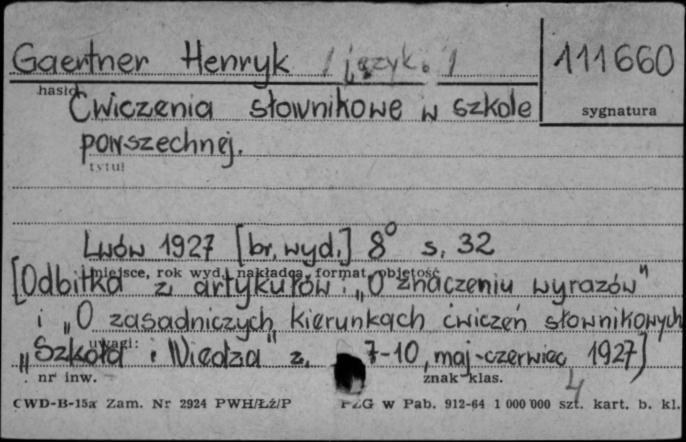 Gaertner Henryk /język./ 111660
hasło sygnatura
Ćwiczenia słownikowe w szkole
powszechnej.
tytuł
Lwów 1927 [br. wyd.] 8° s. 32
miejsce, rok wyd., nakładca, format, objętość
[Odbitka z artykułów: „O znaczeniu wyrazów"
i „O zasadniczych kierunkach ćwiczeń słownikowych
uwagi:
„Szkoła i Wiedza" z. 7-10, maj-czerwiec 1927]
nr inw. znak klas.
4
CWD-B-15a Zam. Nr 2924 PWH/Łź/P PZG w Pab. 912-64 1 000 000 szt. kart. b. kl.